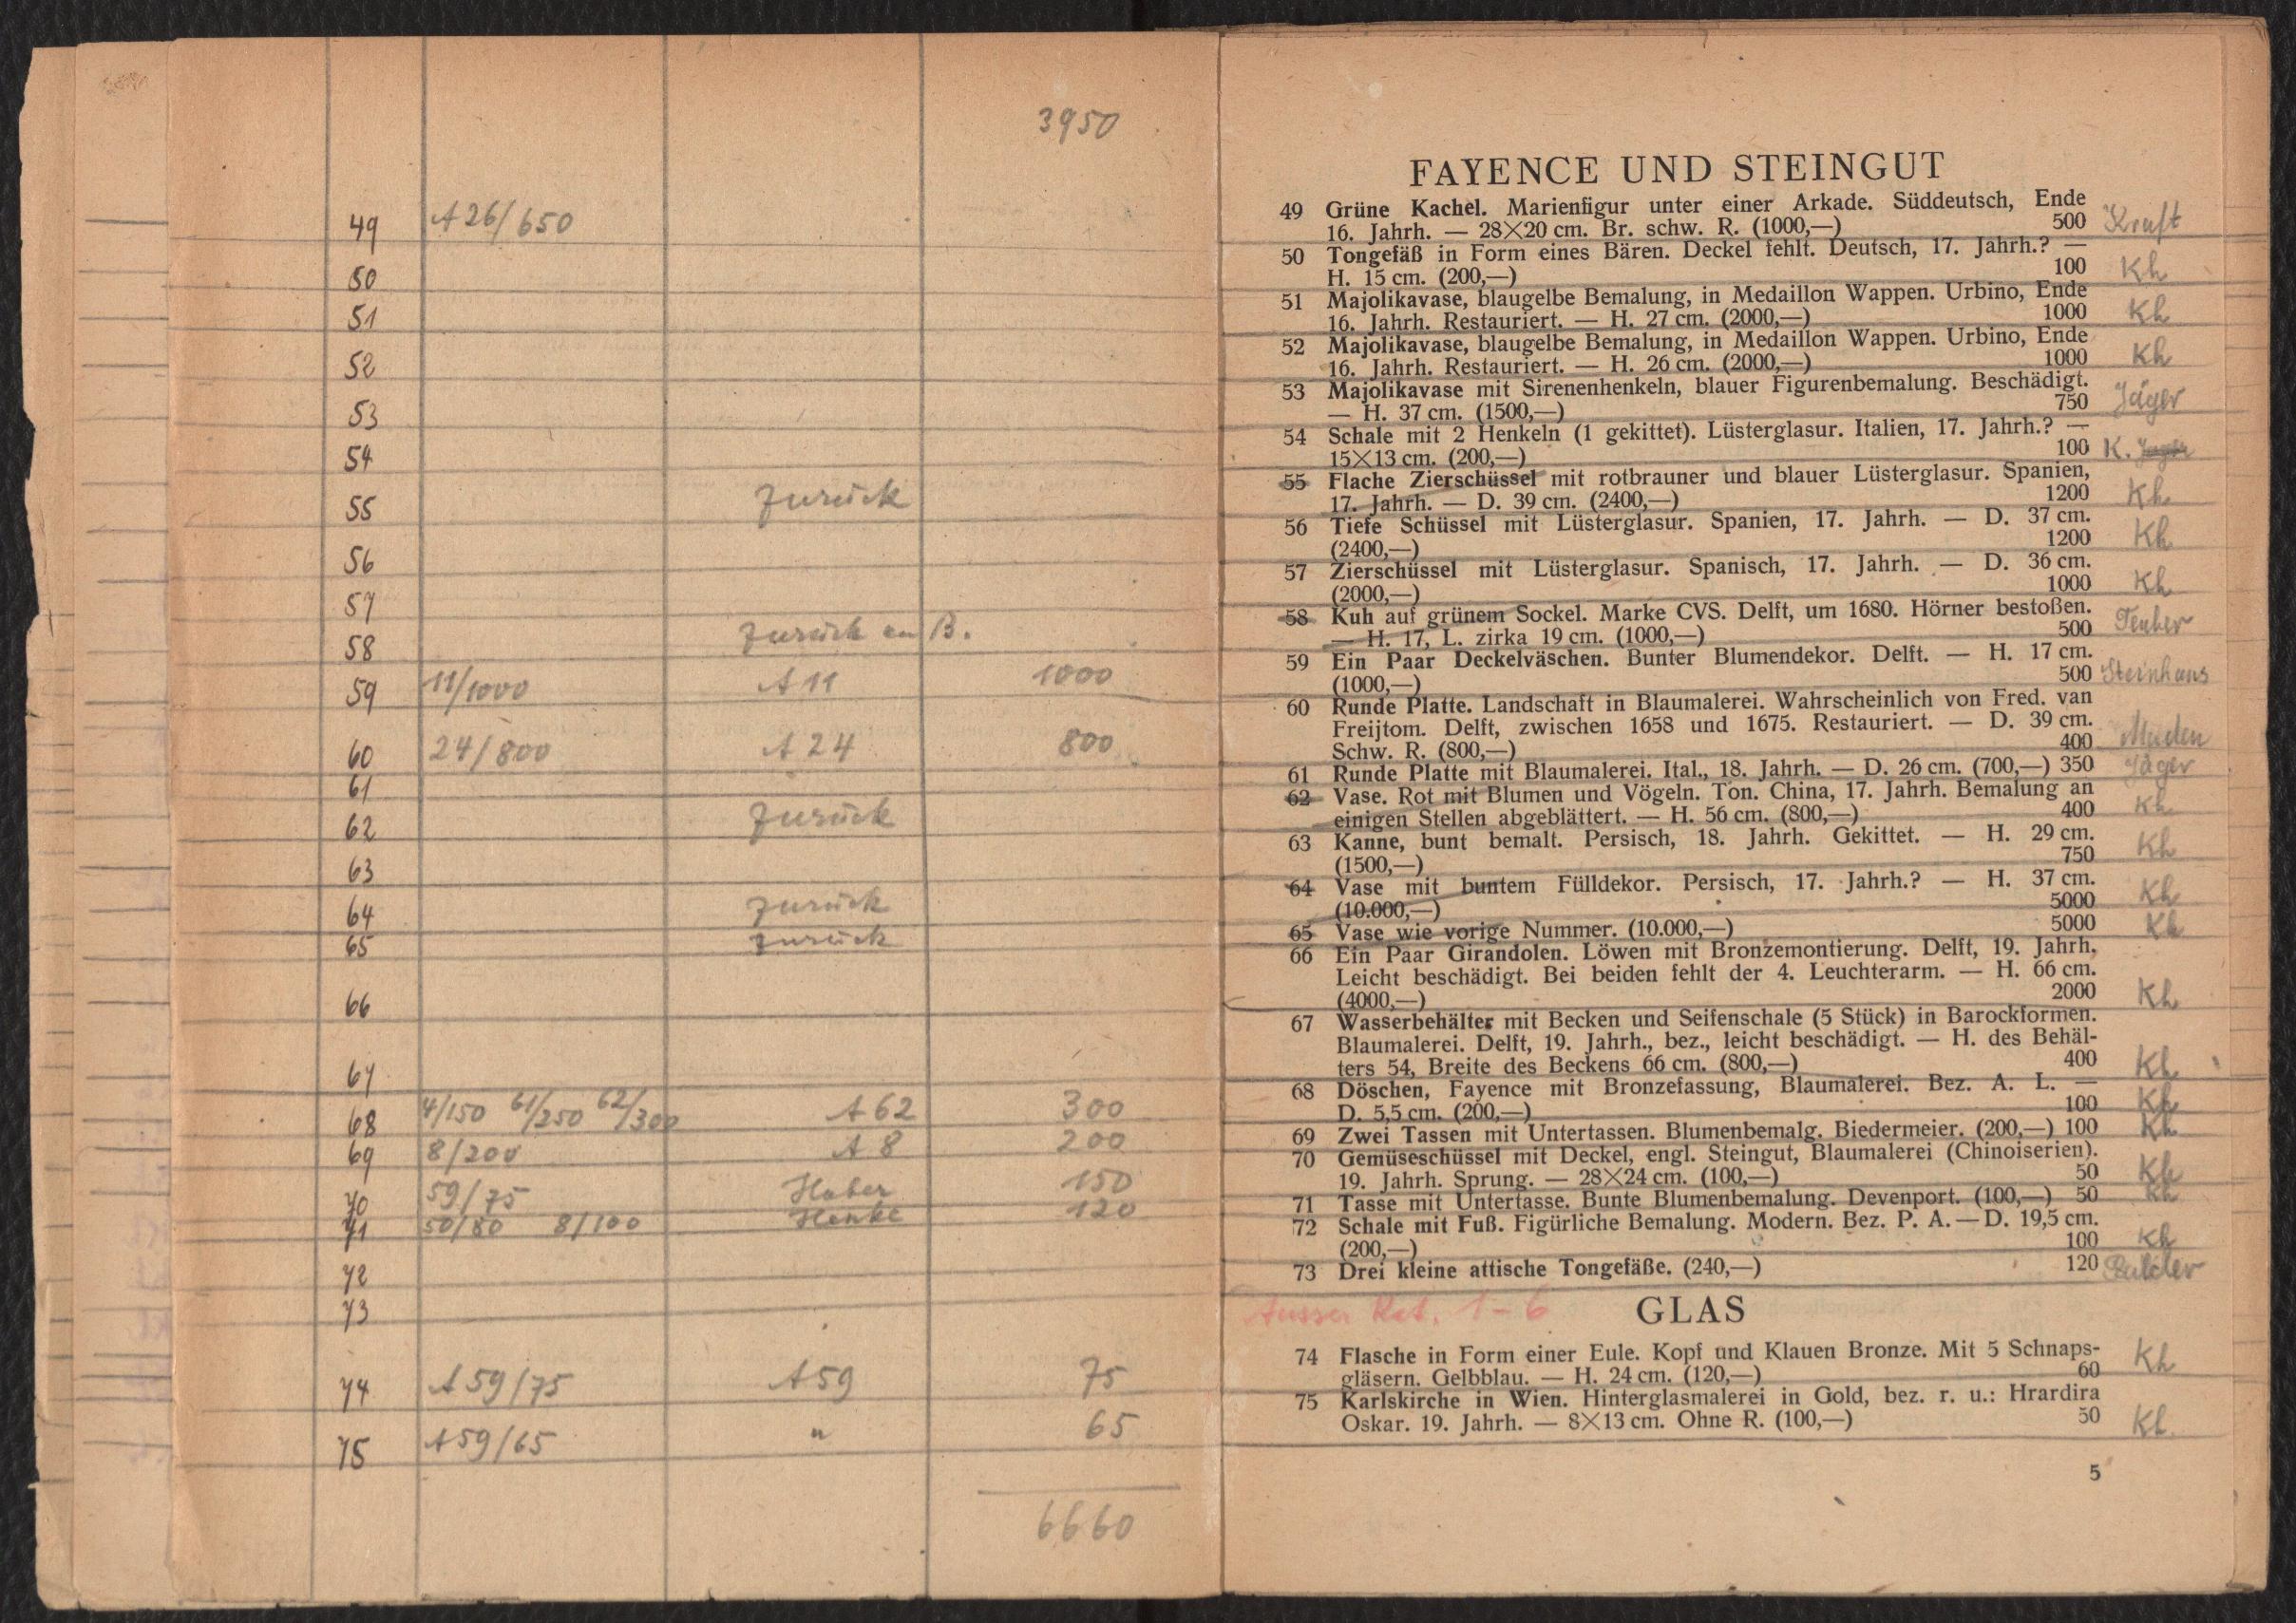 3950
49 A26/650
50
51
52
53
54
55 zurück
56
57
58 zurück an B.
59 11/1000 A11 1000
60 24/800 A24 800
61
62 zurück
63
64 zurück
65 zurück
66
67
68 4/150 61/250 62/300 A62 300
69 8/200 A8 200
70 59/75 150
71 50/80 8/100 120
72
73
74 A59/75 A59 75
75 A59/65 " 65
6660
FAYENCE UND STEINGUT
49 Grüne Kachel. Marienfigur unter einer Arkade. Süddeutsch, Ende
16. Jahrh. — 28×20 cm. Br. schw. R. (1000,—) 500 Kraft
50 Tongefäß in Form eines Bären. Deckel fehlt. Deutsch, 17. Jahrh.? —
H. 15 cm. (200,—) 100 Kh
51 Majolikavase, blaugelbe Bemalung, in Medaillon Wappen. Urbino, Ende
16. Jahrh. Restauriert. — H. 27 cm. (2000,—) 1000 Kh
52 Majolikavase, blaugelbe Bemalung, in Medaillon Wappen. Urbino, Ende
16. Jahrh. Restauriert. — H. 26 cm. (2000,—) 1000 Kh
53 Majolikavase mit Sirenenhenkeln, blauer Figurenbemalung. Beschädigt.
— H. 37 cm. (1500,—) 750 Jäger
54 Schale mit 2 Henkeln (1 gekittet). Lüsterglasur. Italien, 17. Jahrh.? —
15×13 cm. (200,—) 100 K. Jäger
55 Flache Zierschüssel mit rotbrauner und blauer Lüsterglasur. Spanien,
17. Jahrh. — D. 39 cm. (2400,—) 1200 Kh
56 Tiefe Schüssel mit Lüsterglasur. Spanien, 17. Jahrh. — D. 37 cm.
(2400,—) 1200 Kh
57 Zierschüssel mit Lüsterglasur. Spanisch, 17. Jahrh. — D. 36 cm.
(2000,—) 1000 Kh
58 Kuh auf grünem Sockel. Marke CVS. Delft, um 1680. Hörner bestoßen.
— H. 17, L. zirka 19 cm. (1000,—) 500
59 Ein Paar Deckelväschen. Bunter Blumendekor. Delft. — H. 17 cm.
(1000,—) 500 Steinhaus
60 Runde Platte. Landschaft in Blaumalerei. Wahrscheinlich von Fred. van
Freijtom. Delft, zwischen 1658 und 1675. Restauriert. — D. 39 cm.
Schw. R. (800,—) 400
61 Runde Platte mit Blaumalerei. Ital., 18. Jahrh. — D. 26 cm. (700,—) 350 Jäger
62 Vase. Rot mit Blumen und Vögeln. Ton. China, 17. Jahrh. Bemalung an
einigen Stellen abgeblättert. — H. 56 cm. (800,—) 400 Kh
63 Kanne, bunt bemalt. Persisch, 18. Jahrh. Gekittet. — H. 29 cm.
(1500,—) 750 Kh
64 Vase mit buntem Fülldekor. Persisch, 17. Jahrh.? — H. 37 cm.
(10.000,—) 5000 Kh
65 Vase wie vorige Nummer. (10.000,—) 5000 Kh
66 Ein Paar Girandolen. Löwen mit Bronzemontierung. Delft, 19. Jahrh.
Leicht beschädigt. Bei beiden fehlt der 4. Leuchterarm. — H. 66 cm.
(4000,—) 2000 Kh
67 Wasserbehälter mit Becken und Seifenschale (5 Stück) in Barockformen.
Blaumalerei. Delft, 19. Jahrh., bez., leicht beschädigt. — H. des Behäl-
ters 54, Breite des Beckens 66 cm. (800,—) 400 Kh
68 Döschen, Fayence mit Bronzefassung, Blaumalerei. Bez. A. L. —
D. 5,5 cm. (200,—) 100 Kh
69 Zwei Tassen mit Untertassen. Blumenbemalg. Biedermeier. (200,—) 100 Kh
70 Gemüseschüssel mit Deckel, engl. Steingut, Blaumalerei (Chinoiserien).
19. Jahrh. Sprung. — 28×24 cm. (100,—) 50 Kh
71 Tasse mit Untertasse. Bunte Blumenbemalung. Devenport. (100,—) 50 Kh
72 Schale mit Fuß. Figürliche Bemalung. Modern. Bez. P. A. — D. 19,5 cm.
(200,—) 100 Kh
73 Drei kleine attische Tongefäße. (240,—) 120
Ausser Kat. 1-6
GLAS
74 Flasche in Form einer Eule. Kopf und Klauen Bronze. Mit 5 Schnaps-
gläsern. Gelbblau. — H. 24 cm. (120,—) 60 Kh
75 Karlskirche in Wien. Hinterglasmalerei in Gold, bez. r. u.: Hrardira
Oskar. 19. Jahrh. — 8×13 cm. Ohne R. (100,—) 50 Kh.
5